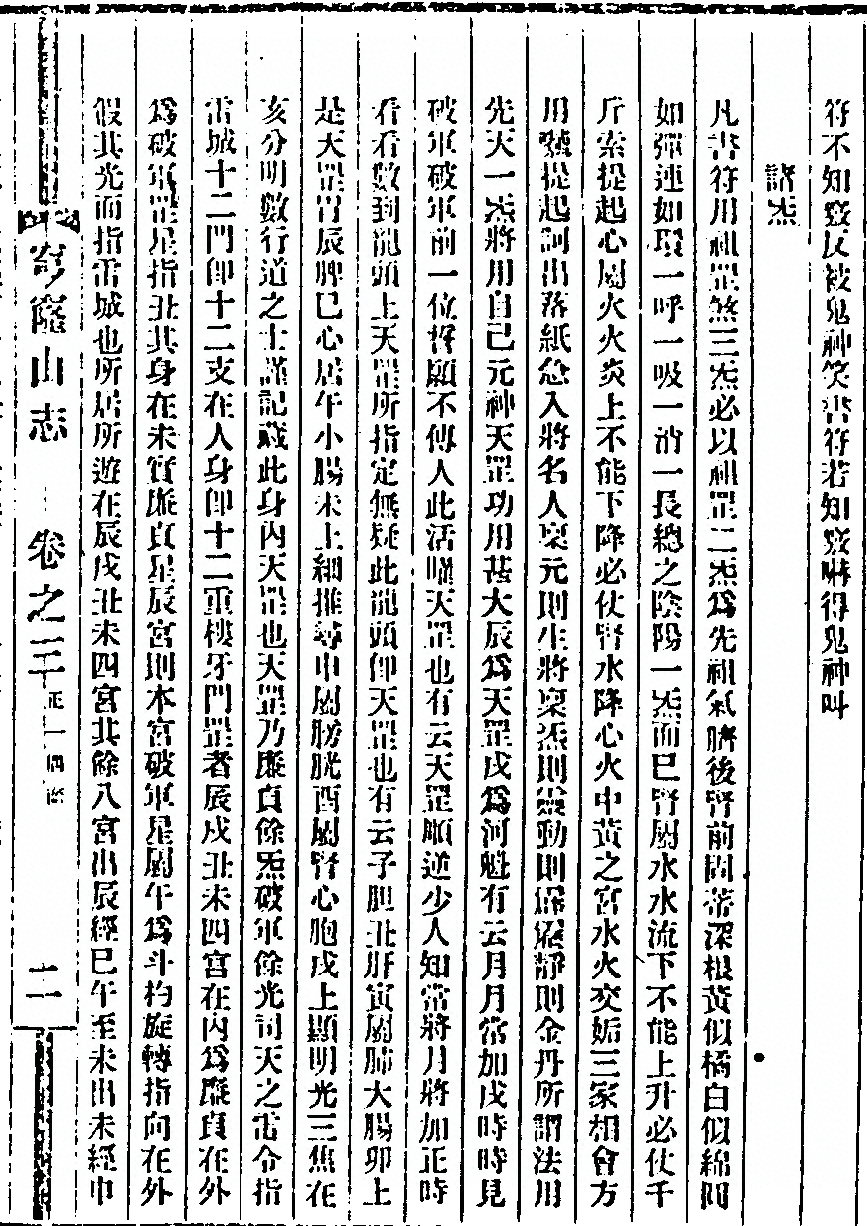 符不知竅反被鬼神笑書符若知竅嚇得鬼神叫
諸炁
凡書符用祖罡煞三炁必以祖罡二炁爲先祖氣臍後腎前固蒂深根黃似橘白似綿圓
如彈連如環一呼一吸一消一長總之陰陽一炁而已腎屬水水流下不能上升必仗千
斤索提起心屬火火炎上不能下降必仗腎水降心火中黃之宮水火交姤三家相會方
用號提起訶出落紙急入將名人稟元則生將稟炁則靈動則 靜則金丹所謂法用
先天一炁將用自己元神天罡功用甚大辰爲天罡戌爲河魁有云月月常加戌時時見
破軍破軍前一位誓願不傳人此活曜天罡也有云天罡順逆少人知常將月將加正時
看看數到龍頭上天罡所指定無疑此龍頭卽天罡也有云子胆丑肝寅屬肺大腸卯上
是天罡胃辰脾巳心居午小腸未上細推尋申屬膀胱酉屬腎心胞戌上顯明光三焦在
亥分明數行道之士謹記藏此身內天罡也天罡乃廉貞餘炁破軍餘光司天之雷令指
雷城十二門卽十二支在人身卽十二重樓牙門罡者辰戌丑未四宮在內爲廉貞在外
爲破軍罡星指丑其身在未實廉貞星辰宮則本宮破軍星屬午爲斗杓旋轉指向在外
假其光而指雷城也所居所遊在辰戌丑未四宮其餘八宮出辰經巳午至未出未經申
穹窿山志 卷之三 正一 二